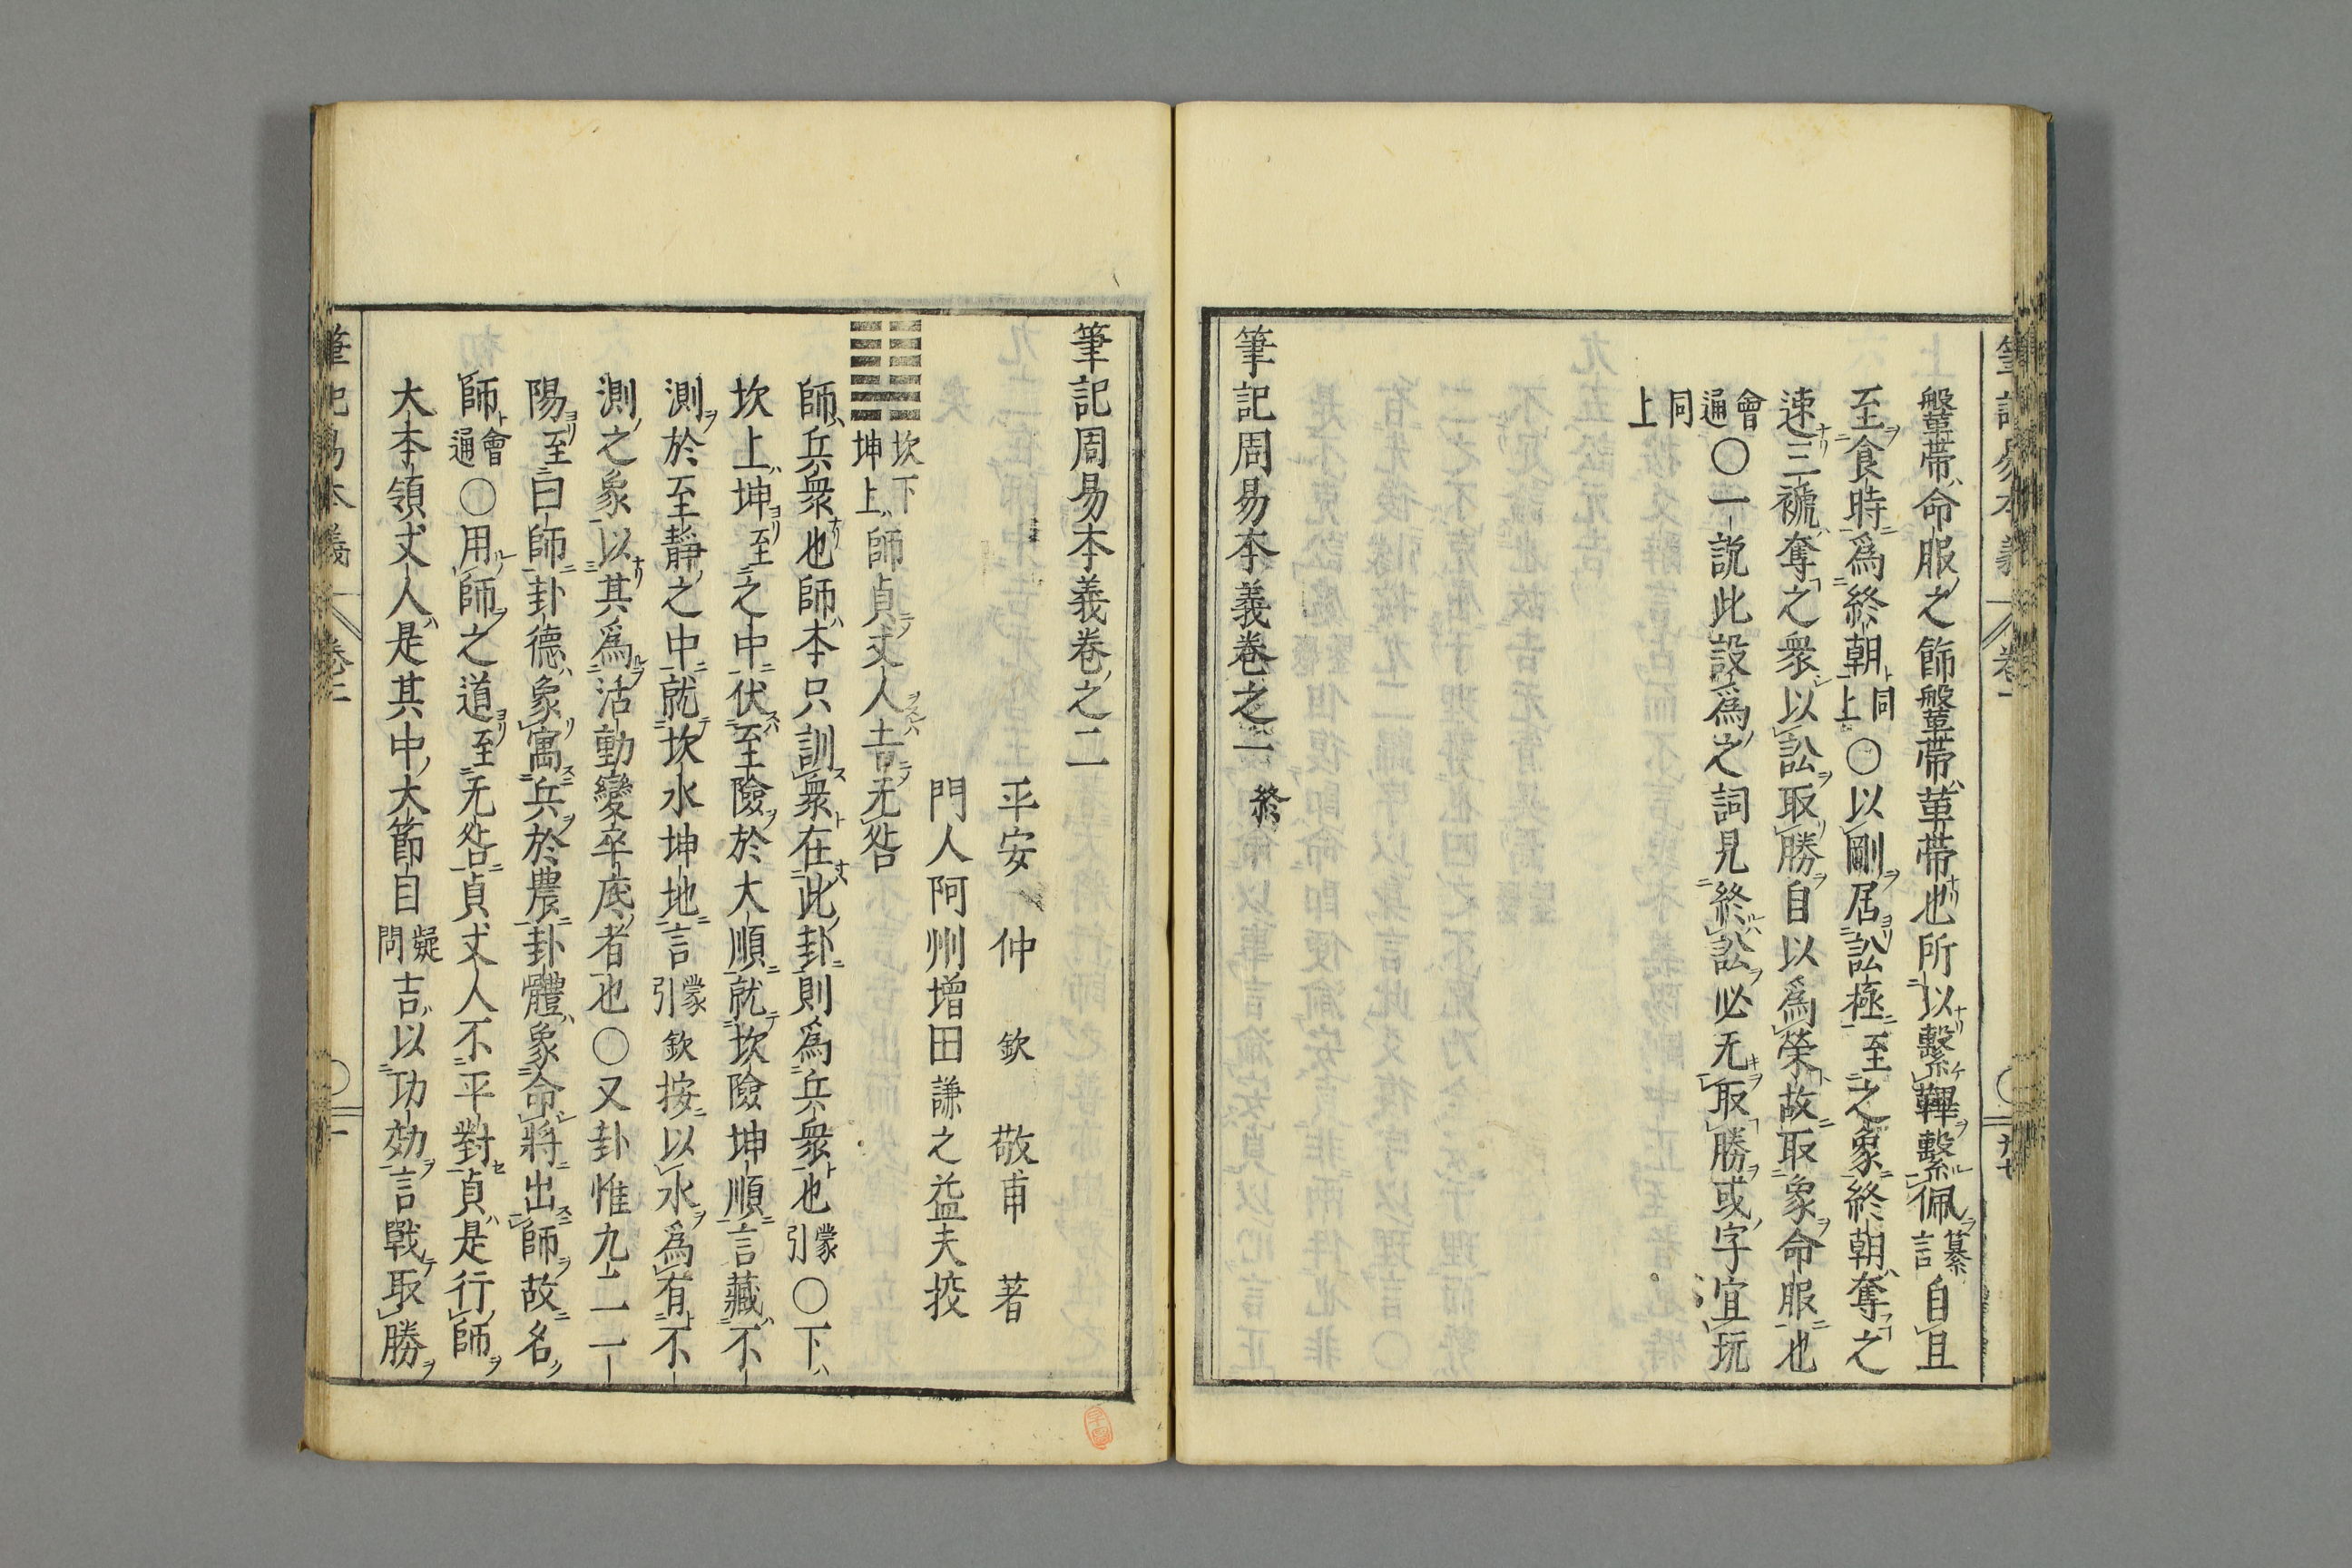 鞶帶命服之飾鞶帶革帶也所以繫韠繫佩纂言自且
至食時爲終朝同上〇以剛居訟極至之象終朝奪之
速三褫奪之衆以訟取勝自以爲榮故取象命服也
會通〇一說此設爲之詞見終訟必无取勝或字宜玩
同上
筆記周易本義卷之一 終
筆記周易本義卷之二
平安 仲 欽 敬甫 著
門人阿州增田謙之益夫挍
坎下坤上師貞丈人吉无咎
師兵衆也師本只訓衆在此卦則爲兵衆也蒙引〇下
坎上坤至之中伏至險於大順就坎險坤順言藏不
測於至靜之中就坎水坤地言蒙引欽按以水爲有不
測之象以其爲活動變卒底者也〇又卦惟九二一
陽至曰師卦德象寓兵於農卦體象命將出師故名
師會通〇用師之道至无咎貞丈人不平對貞是行師
大本領丈人是其中大節目疑問吉以功効言戰取勝
筆記易本義 卷二